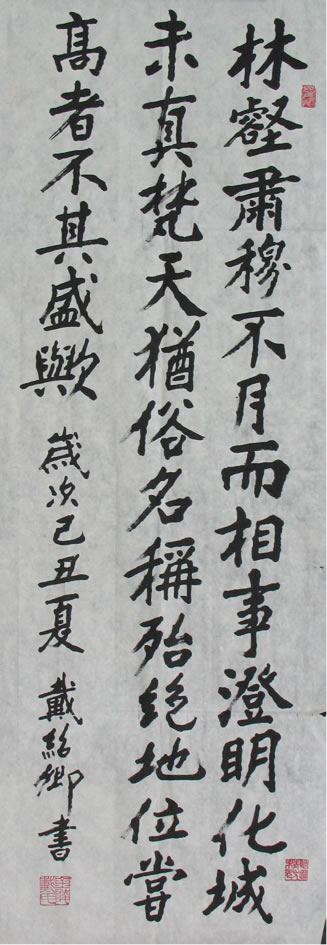 林壑肅穆不月而相事澄明化城
未真梵天猶俗名稱殆絕地位當
高者不其盛歟
歲次己丑夏 戴紹卿書